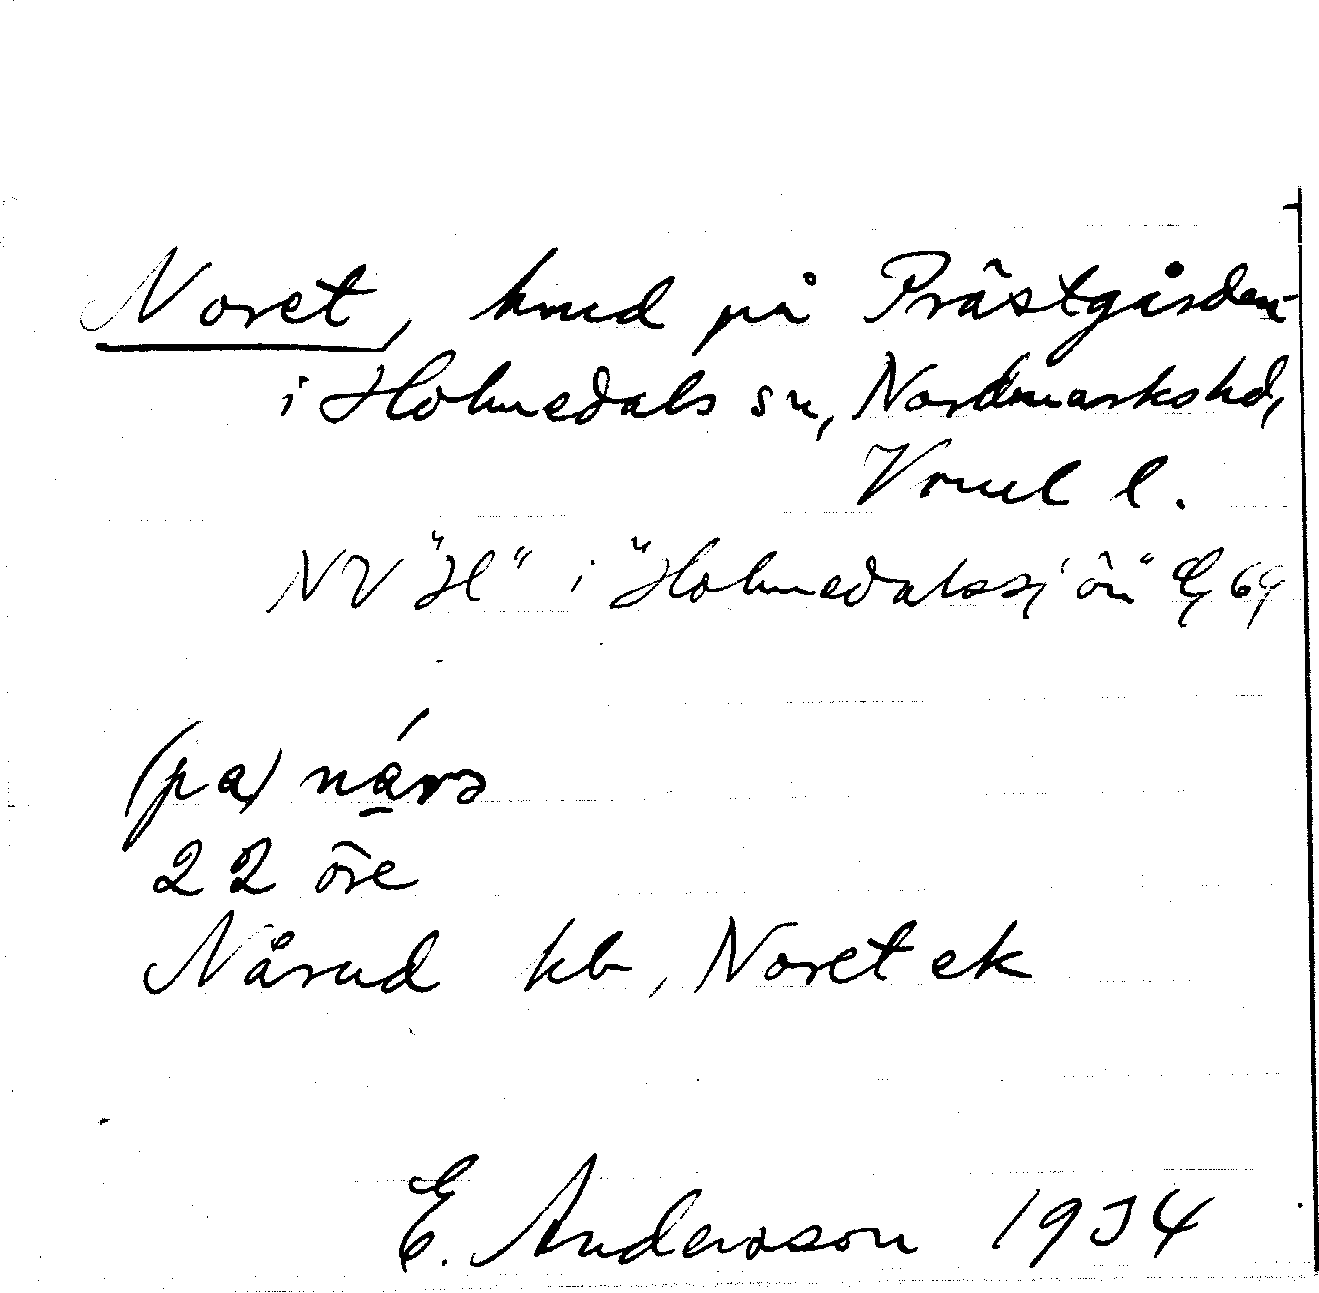 Noret, hmd på Prästgården
i Holmedals sn, Nordmarks hd,
Vrml l.
NV "H" i "Holmedalssjön" 69
(pa) nárə
22 öre
Nårud kb, Noret ek
E. Andersson 1934